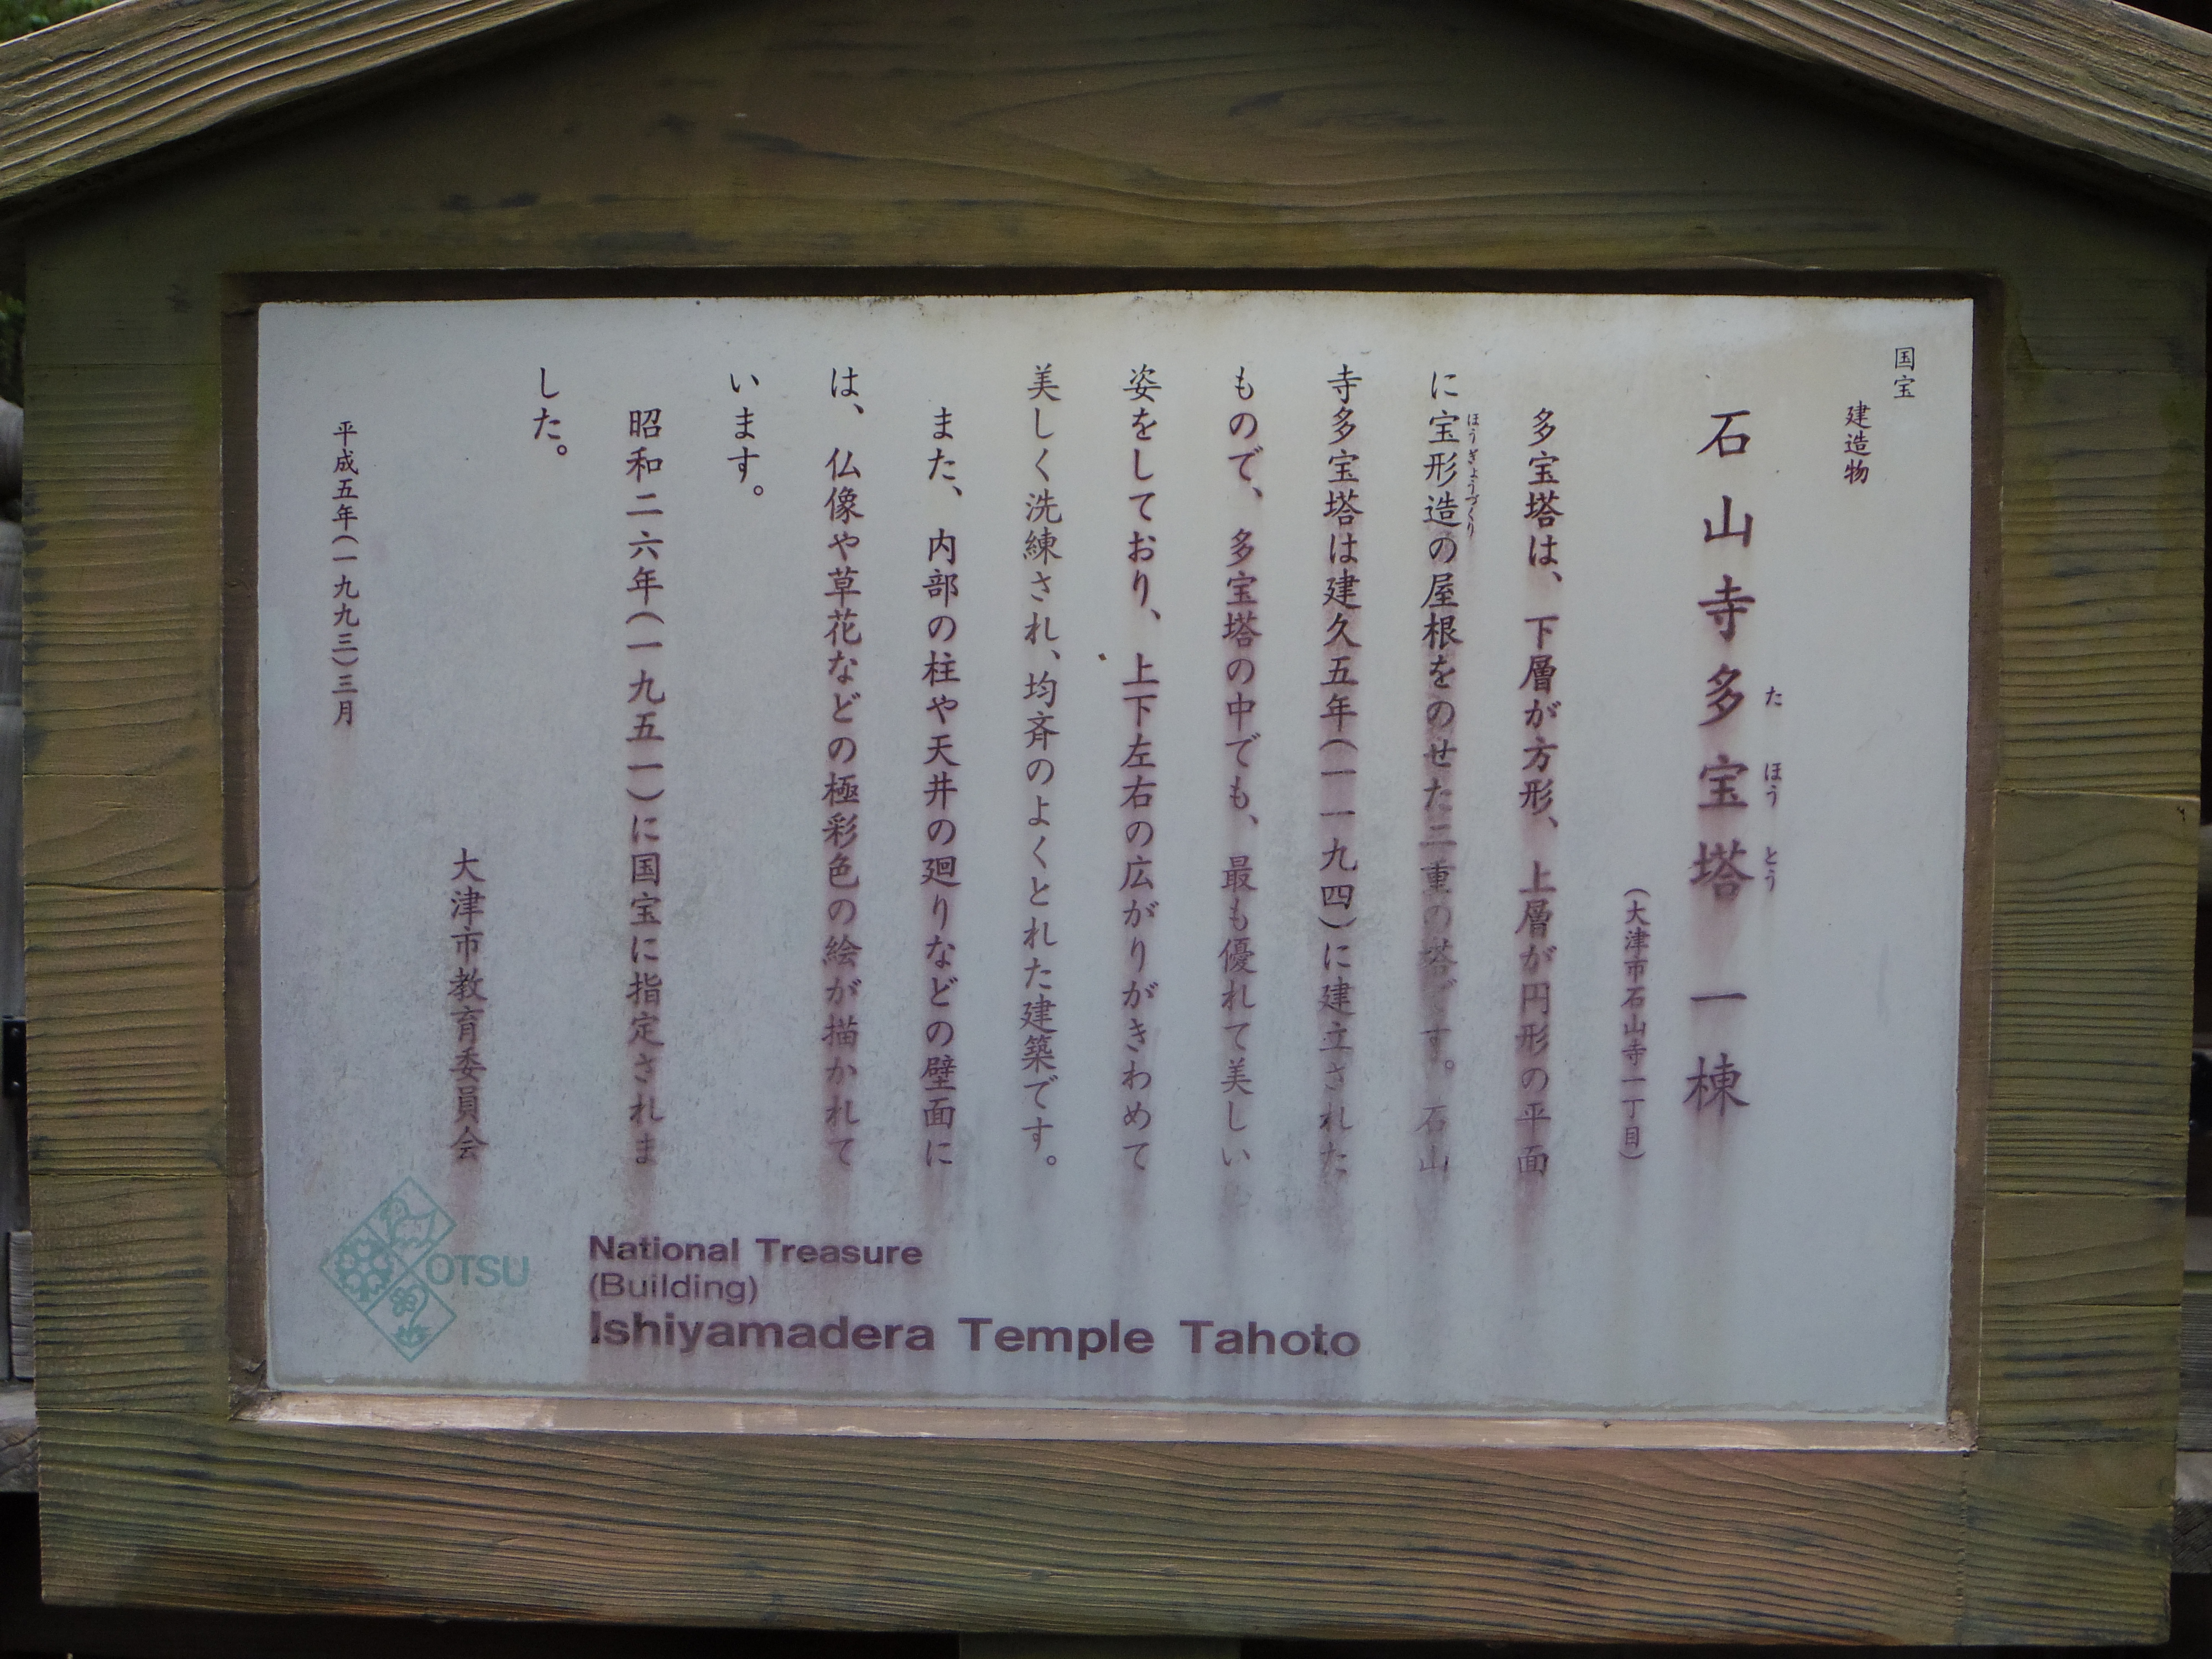 国宝
建造物
石山寺多宝塔 一棟
たほうとう
(大津市石山寺一丁目)
多宝塔は、下層が方形、上層が円形の平面
に宝形造の屋根をのせた二重の塔です。石山
ほうぎょうづくり
寺多宝塔は建久五年(一一九四)に建立された
もので、多宝塔の中でも、最も優れて美しい
姿をしており、上下左右の広がりがきわめて
美しく洗練され、均斉のよくとれた建築です。
また、内部の柱や天井の廻りなどの壁面に
は、仏像や草花などの極彩色の絵が描かれて
います。
昭和二六年(一九五一)に国宝に指定されま
した。
大津市教育委員会
平成五年(一九九三)三月
OTSU
National Treasure
(Building)
Ishiyamadera Temple Tahoto